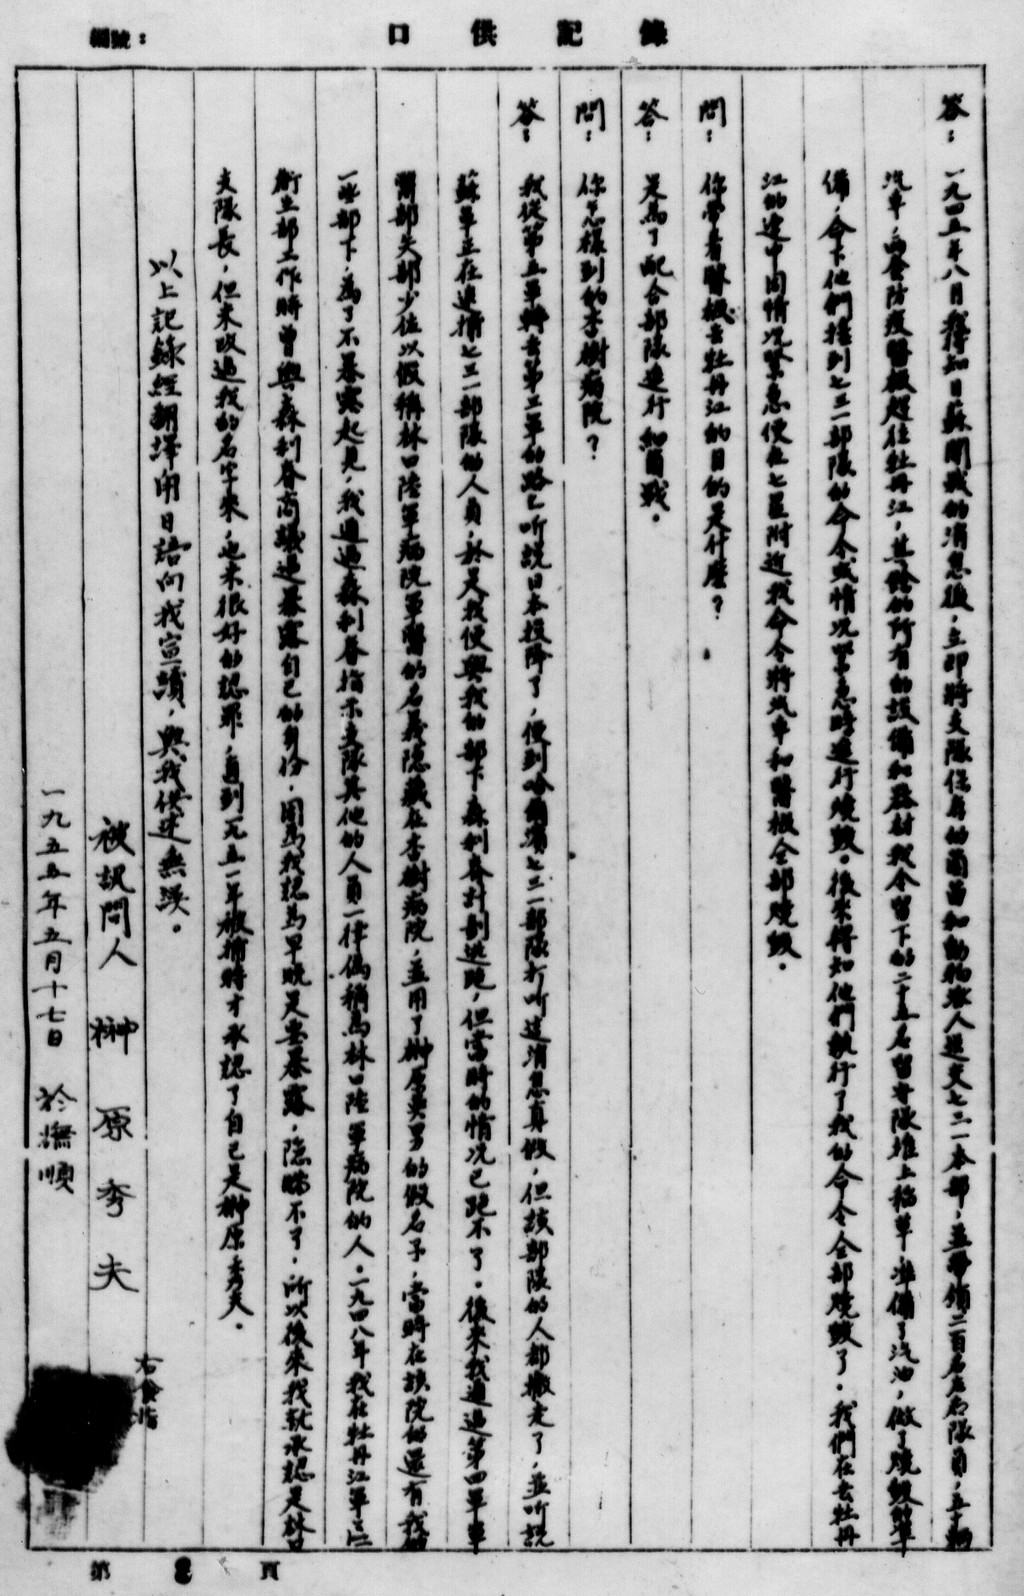 編號：
口供記錄
答：一九四五年八月我得知日蘇開戰的消息後，立即將支隊保存的菌苗和動物派人送交七三一本部，並帶領二百名左右隊員，五十輛
汽車，兩套防疫醫報趕往牡丹江，其餘的所有的設備和器材我令留下的二十五名留守隊堆上稻草準備了汽油，做了燒毀的準
備，令下他們接到七三一部隊的命令或情况緊急時進行燒毀。後來得知他們執行了我的命令全部燒毀了。我們在去牡丹
江的途中因情况緊急便在七星附近我命令將汽車和醫報全部燒毀。
問：你帶着醫報去牡丹江的目的是什麼？
答：是為了配合部隊進行細菌戰。
問：你怎樣到的杏樹病院？
答：我從第五軍轉去第三軍的路上听說日本投降了，便到哈爾濱七三一部隊打听這消息真假，但該部隊的人都撤走了，並听說
蘇軍正在追捕七三一部隊的人員，於是我便與我的部下森利春計劃逃跑，但當時的情况已跑不了。後來我通過第四軍軍
醫部矢部少佐以假稱林口陸軍病院軍醫的名義隱藏在杏樹病院，並用了榊原英男的假名子，當時在該院的還有我的
一些部下，為了不暴露起見，我通過森利春指示支隊其他的人員一律偽稱為林口陸軍病院的人。一九四八年我在牡丹江軍工
衛生部工作時曾與森利春商議過暴露自己的身份，因為我認為早晚是要暴露，隱瞞不了，所以後來我就承認是林口
支隊長，但未改過我的名字來，也未很好的認罪，直到一九五一年被捕時才承認了自己是榊原秀夫。
以上記錄經翻譯用日語向我宣讀，與我供述無誤。
被訊問人 榊原秀夫
右食指
一九五五年五月十七日 於撫順
第 2 頁